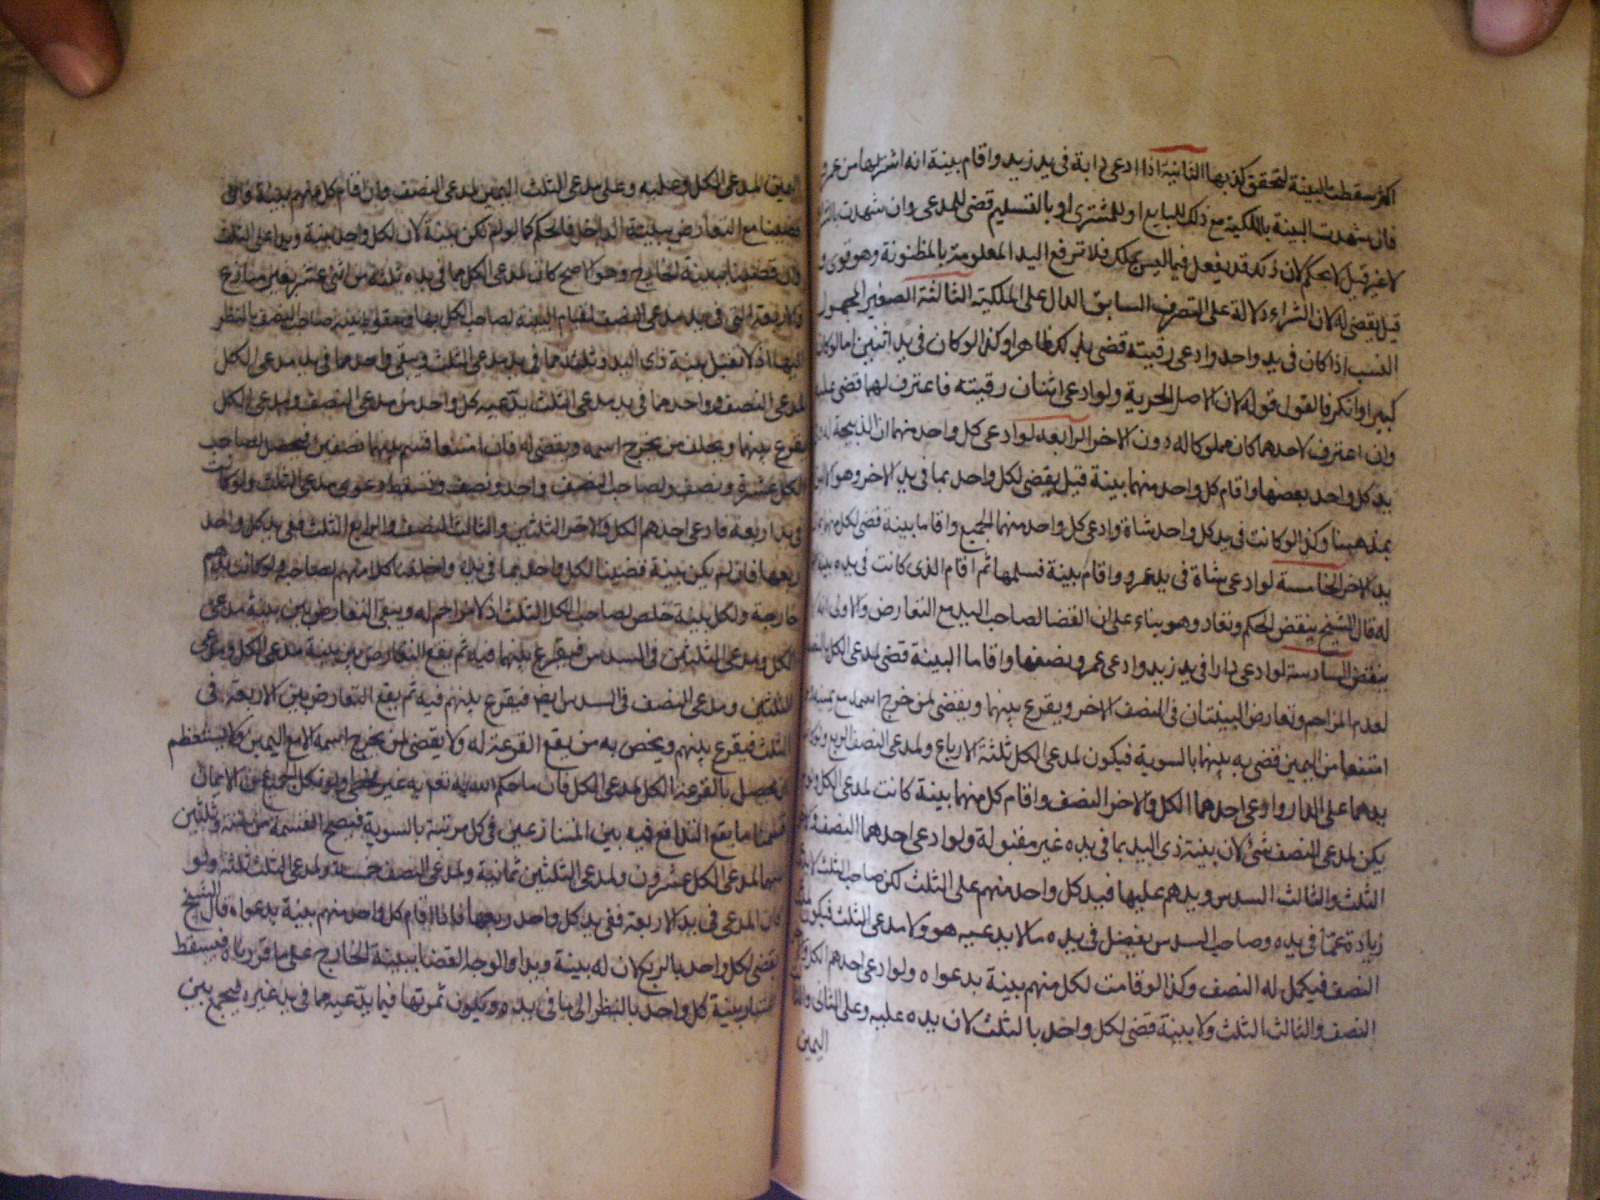 اكثر سقطت البينة لتحقق كذبها الثانية اذا ادعى دابة في يد زيد واقام بينة انه اشتريها من عمرو
فان شهدت البينة بالملكية مع ذلك للبايع او للمشترى او بالتسليم قضى للمدعى وان شهدت بالشرا
لا غير قيل لا يحكم لان ذلك قد يفعل فيما ليس بملك فلا ترفع اليد المعلومة بالمظنونة وهو قوى و
قيل يقضى له لان الشراء دلالة على التصرف السابق الدال على الملكية الثالثة الصغير المجهول
النسب اذا كان في يد واحد وادعى رقيته قضى بذلك ظاهرا وكذا لو كان في يد اثنين اما لو كان
كبيرا وانكر فالقول قوله لان الاصل الحرية ولو ادعى اثنان رقيته فاعترف لهما قضى عليه
وان اعترف لاحدهما كان مملوكا له دون الاخر الرابعة لو ادعى كل واحد منهما ان الذبيحة له وفي
يد كل واحد بعضها واقام كل واحد منهما بينة قيل يقضى لكل واحد بما في يد الاخر وهو الاليق
بمذهبنا وكذا لو كانت في يد كل واحد شاة وادعى كل واحد منهما الجميع واقاما بينة قضى لكل منهما بما
يد الاخر الخامسة لو ادعى شاة في يد عمرو واقام بينة فسلمها ثم اقام الذى كانت في يده بينة
له قال الشيخ ينقض الحكم وتعاد وهو بناء على ان القضا لصاحب اليد مع التعارض والاولى انه لا
ينقض السادسة لو ادعى دارا في يد زيد وادعى عمرو نصفها واقاما البينة قضى لمدعى الكل بالنصف
لعدم المزاحم وتعارض البينتان في النصف الاخر ويقرع بينهما ويقضى لمن خرج اسمه مع يمينه
امتنعا من اليمين قضى به بينهما بالسوية فيكون لمدعى الكل ثلثة الارباع ولمدعى النصف الربع ولو كانت
يدهما على الدار وادعى احدهما الكل والاخر النصف واقام كل منهما بينة كانت لمدعى الكل ولم
يكن لمدعى النصف شئ لان بينة ذى اليد بما في يده غير مقبولة ولو ادعى احدهما النصف والاخر
الثلث والثالث السدس ويدهم عليها فيد كل واحد منهم على الثلث لكن صاحب الثلث لا يدعى
زيادة عما في يده وصاحب السدس يفضل في يده ما لا يدعيه هو ولا مدعى الثلث فيكون لمدعى
النصف فيكمل له النصف وكذا لو قامت لكل منهم بينة بدعواه ولو ادعى احدهم الكل والاخر
النصف والثالث الثلث ولا بينة قضى لكل واحد بالثلث لان يده عليه وعلى الثانى والثالث
اليمين
اليمين لمدعى الكل وعليه وعلى مدعى الثلث اليمين لمدعى النصف وان اقام كل منهم بينة فان
قضينا مع التعارض ببينة الداخل فالحكم كما لو لم تكن بينة لان لكل واحد بينة ويدا على الثلث
وان قضينا ببينة الخارج وهو الاصح كان لمدعى الكل مما في يده ثلثة من اثنى عشر بغير منازع
والاربعة التي في يد مدعى النصف لقيام البينة لصاحب الكل بها وسقوط بينة صاحب النصف بالنظر
اليها اذ لا تقبل بينة ذى اليد وثلثة مما في يد مدعى الثلث ويبقى واحد مما في يد مدعى الكل
لمدعى النصف وواحد مما في يد مدعى الثلث يدعيه كل واحد من مدعى النصف ومدعى الكل
يقرع بينهما ويحلف من يخرج اسمه ويقضى له فان امتنعا قسم بينهما نصفين فيحصل لصاحب
الكل عشرة ونصف ولصاحب النصف واحد ونصف وتسقط دعوى مدعى الثلث ولو كانت
في يد اربعة فادعى احدهم الكل والاخر الثلثين والثالث النصف والرابع الثلث ففي يد كل واحد
ربعها فان لم يكن بينة قضينا لكل واحد بما في يده واحلفنا كلا منهم لصاحبه ولو كانت يدهم
خارجة ولكل بينة خلص لصاحب الكل الثلث اذ لا مزاحم له ويبقى التعارض بين بينة مدعى
الكل ومدعى الثلثين في السدس فيقرع بينهما فيه ثم يقع التعارض بين بينة مدعى الكل ومدعى
الثلثين ومدعى النصف في السدس ايضا فيقرع بينهم فيه ثم يقع التعارض بين الاربعة في
الثلث فيقرع بينهم ويخص به من يقع القرعة له ولا يقضى لمن يخرج اسمه الا مع اليمين ولا يستعظم
ان يحصل بالقرعة الكل لمدعى الكل فان ما حكم الله به نعم به غير مخطى ولو نكل الجميع عن الايمان
قسمنا ما يقع التدافع فيه بين المتنازعين في كل مرتبة بالسوية فيصح القسمة من ستة وثلثين
سهما لمدعى الكل عشرون ولمدعى الثلثين ثمانية ولمدعى النصف خمسة ولمدعى الثلث ثلثة ولو
كان المدعى في يد الاربعة ففي يد كل واحد ربعها فاذا اقام كل واحد منهم بينة بدعواه قال الشيخ
يقضى لكل واحد بالربع لان له بينة ويدا والوجه القضا ببينة الخارج على ما قررناه فيسقط
اعتبار بينة كل واحد بالنظر الى ما في يده ويكون ثمرتها فيما يدعيه مما في يد غيره فيجمع بين